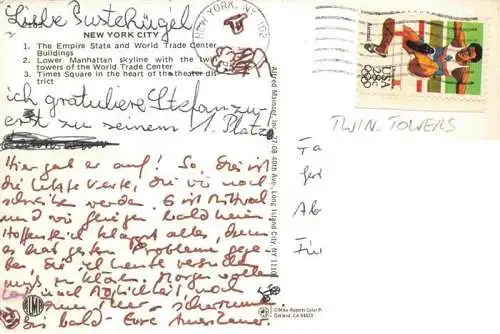 Liebe Pustekügel
NEW YORK CITY
1. The Empire State and World Trade Center
Buildings
2. Lower Manhattan skyline with the tw
towers of the World Trade Center
3. Times Square in the heart of the theater dis
trict
NEW YORK, NY 100
USA
ich gratuliere Stefan zu-
erst zu seinem 1. Platz
TWIN-TOWERS
Hier geb er auf! So, dies ist
die letzte Karte, die wir noch
schreiben werden. Es ist Mittwoch
und wir fliegen bald heim
Hoffentlich klappt alles, denn
es hat gestern Probleme gege-
ben, die ich heute versuchen
muß zu klären. Morgen wollen
und Möglichkeit noch
Meer schwimmen.
Bis bald - Eure Amerikaner.
Alfred Mainzer, Inc., 27-08 40th Ave., Long Island City, NY 11101
©Mike Roberts Color P
Oakland, CA 94623